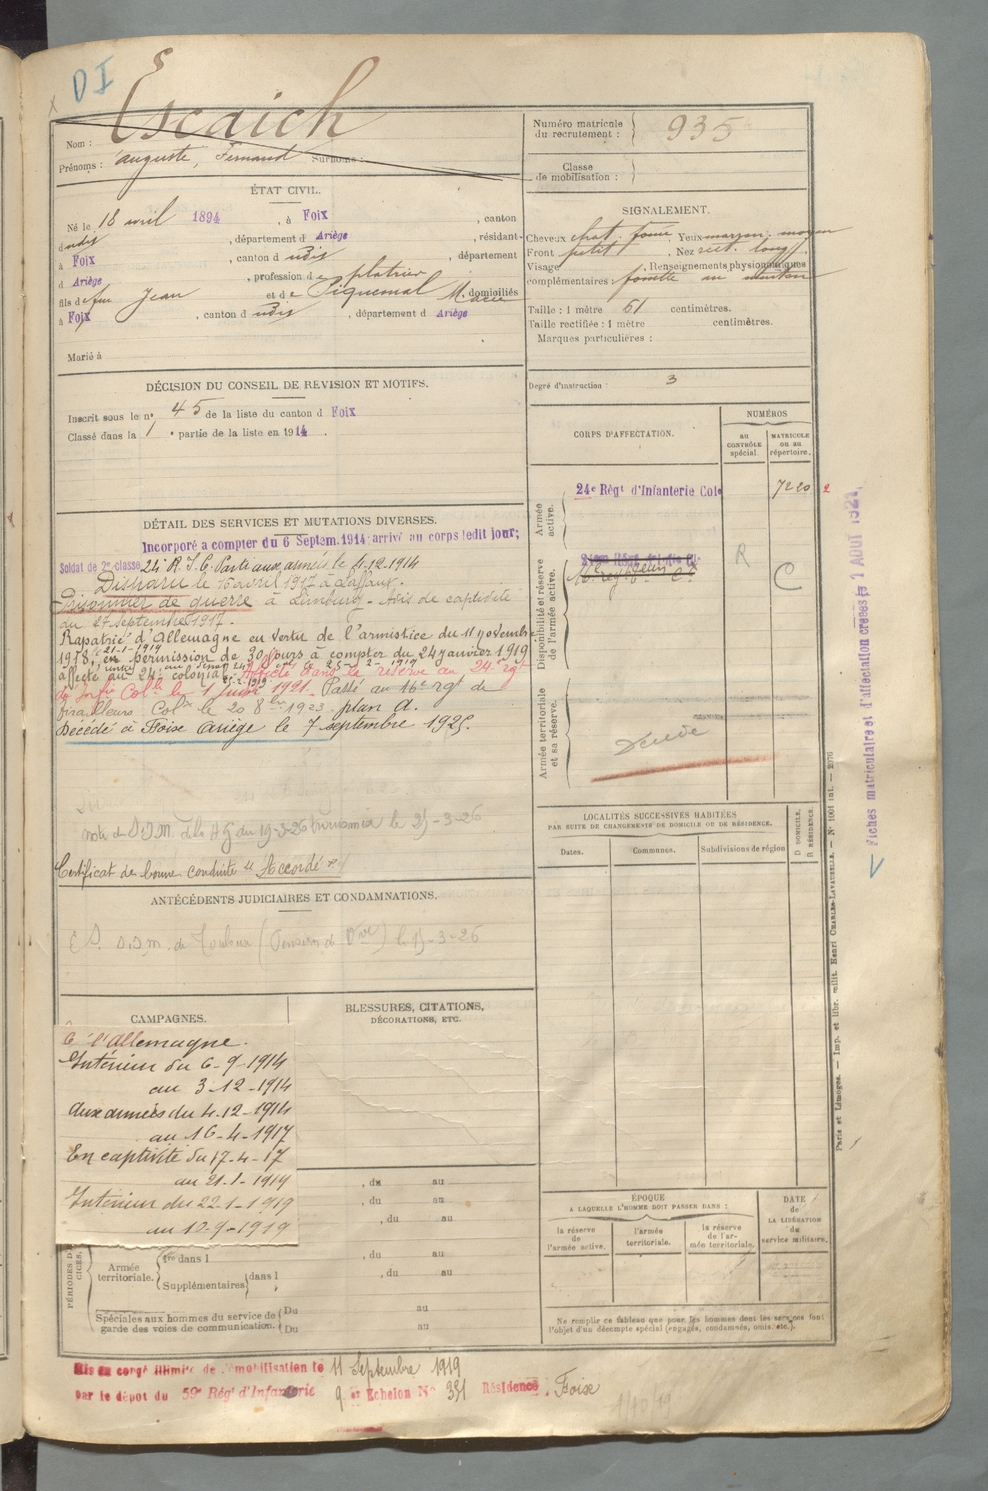 DI
Nom : Escaich
Prénoms : auguste, Fernand Surnoms :
ÉTAT CIVIL.
Né le 18 avril 1894, à Foix, canton
dudit, département d Ariège, résidant
à Foix, canton d udit, département
d Ariège, profession de platrier
fils de feu Jean et de Piquemal Marie domiciliés
à Foix, canton d udit, département d Ariège
Marié à
DÉCISION DU CONSEIL DE REVISION ET MOTIFS.
Inscrit sous le n° 45 de la liste du canton d Foix
Classé dans la 1 e partie de la liste en 1914.
DÉTAIL DES SERVICES ET MUTATIONS DIVERSES.
Incorporé a compter du 6 Septem. 1914 arrivé au corps ledit jour;
Soldat de 2e classe 24e R.I.C. Parti aux armées le 4.12.1914
Disparu le 16 avril 1917 à Laffaux.
Prisonnier de guerre à Limburg - Avis de captivité
du 27 septembre 1917.
Rapatrié d'Allemagne en vertu de l'armistice du 11 novembre
1918, le 21-1-1919 en permission de 30 jours à compter du 24 janvier 1919
affecté au 24e colonial Affecté dans la réserve au 24e rgt
d'Infie Colle le 1 Juin 1921. Passé au 16e rgt de
Tirailleurs Colx le 20 8bre 1923. plan A.
Décédé à Foix Ariège le 7 septembre 1925.
le 19-3-26 le 25-3-26
Certificat de bonne conduite "Accordé"
ANTÉCÉDENTS JUDICIAIRES ET CONDAMNATIONS.
de Toulouse (Pension de Vve) le 15-3-26
CAMPAGNES.
C l'Allemagne.
Intérieur du 6-9-1914
au 3-12-1914
Aux armées du 4-12-1914
au 16-4-1917
En captivité du 17-4-17
au 21-1-1919
Intérieur du 22-1-1919
au 10-9-1919
BLESSURES, CITATIONS,
DÉCORATIONS, ETC.
, du au
, du au
, du au
Armée territoriale. 1re dans l , du au
Supplémentaires dans l , du au
Spéciales aux hommes du service de Du au
garde des voies de communication. Du au
Mis en congé illimité de démobilisation le 11 Septembre 1919
par le dépot du 59e Régt d'Infanterie 9 e Echelon N° 351 Résidence : Foix
Numéro matricule
du recrutement : 935
Classe
de mobilisation :
SIGNALEMENT.
Cheveux chat. foncé, Yeux marron moyen
Front petit, Nez rect. long
Visage , Renseignements physionomiques
complémentaires : fossette au menton
Taille : 1 mètre 61 centimètres.
Taille rectifiée : 1 mètre centimètres.
Marques particulières :
Degré d'instruction : 3
CORPS D'AFFECTATION.
NUMÉROS
au CONTRÔLE spécial.
MATRICULE ou au répertoire.
Armée active.
24e Régt d'Infanterie Cole
7220
Disponibilité et réserve de l'armée active.
R
C
Armée territoriale et sa réserve.
Décédé
LOCALITÉS SUCCESSIVES HABITÉES
PAR SUITE DE CHANGEMENTS DE DOMICILE OU DE RÉSIDENCE.
Dates.
Communes.
Subdivisions de région
D DOMICILE.
R RÉSIDENCE.
ÉPOQUE
A LAQUELLE L'HOMME DOIT PASSER DANS :
la réserve de l'armée active.
l'armée territoriale.
la réserve de l'armée territoriale.
DATE
de
LA LIBÉRATION
du
service militaire.
Ne remplir ce tableau que pour les hommes dont les services font
l'objet d'un décompte spécial (engagés, condamnés, omis, etc.).
Fiches matriculaire et d'affectation créées le 1 AOUT 1921
Paris et Limoges. — Imp. et libr. milit. Henri CHARLES-LAVAUZELLE. — N° 1001 int. — 2076